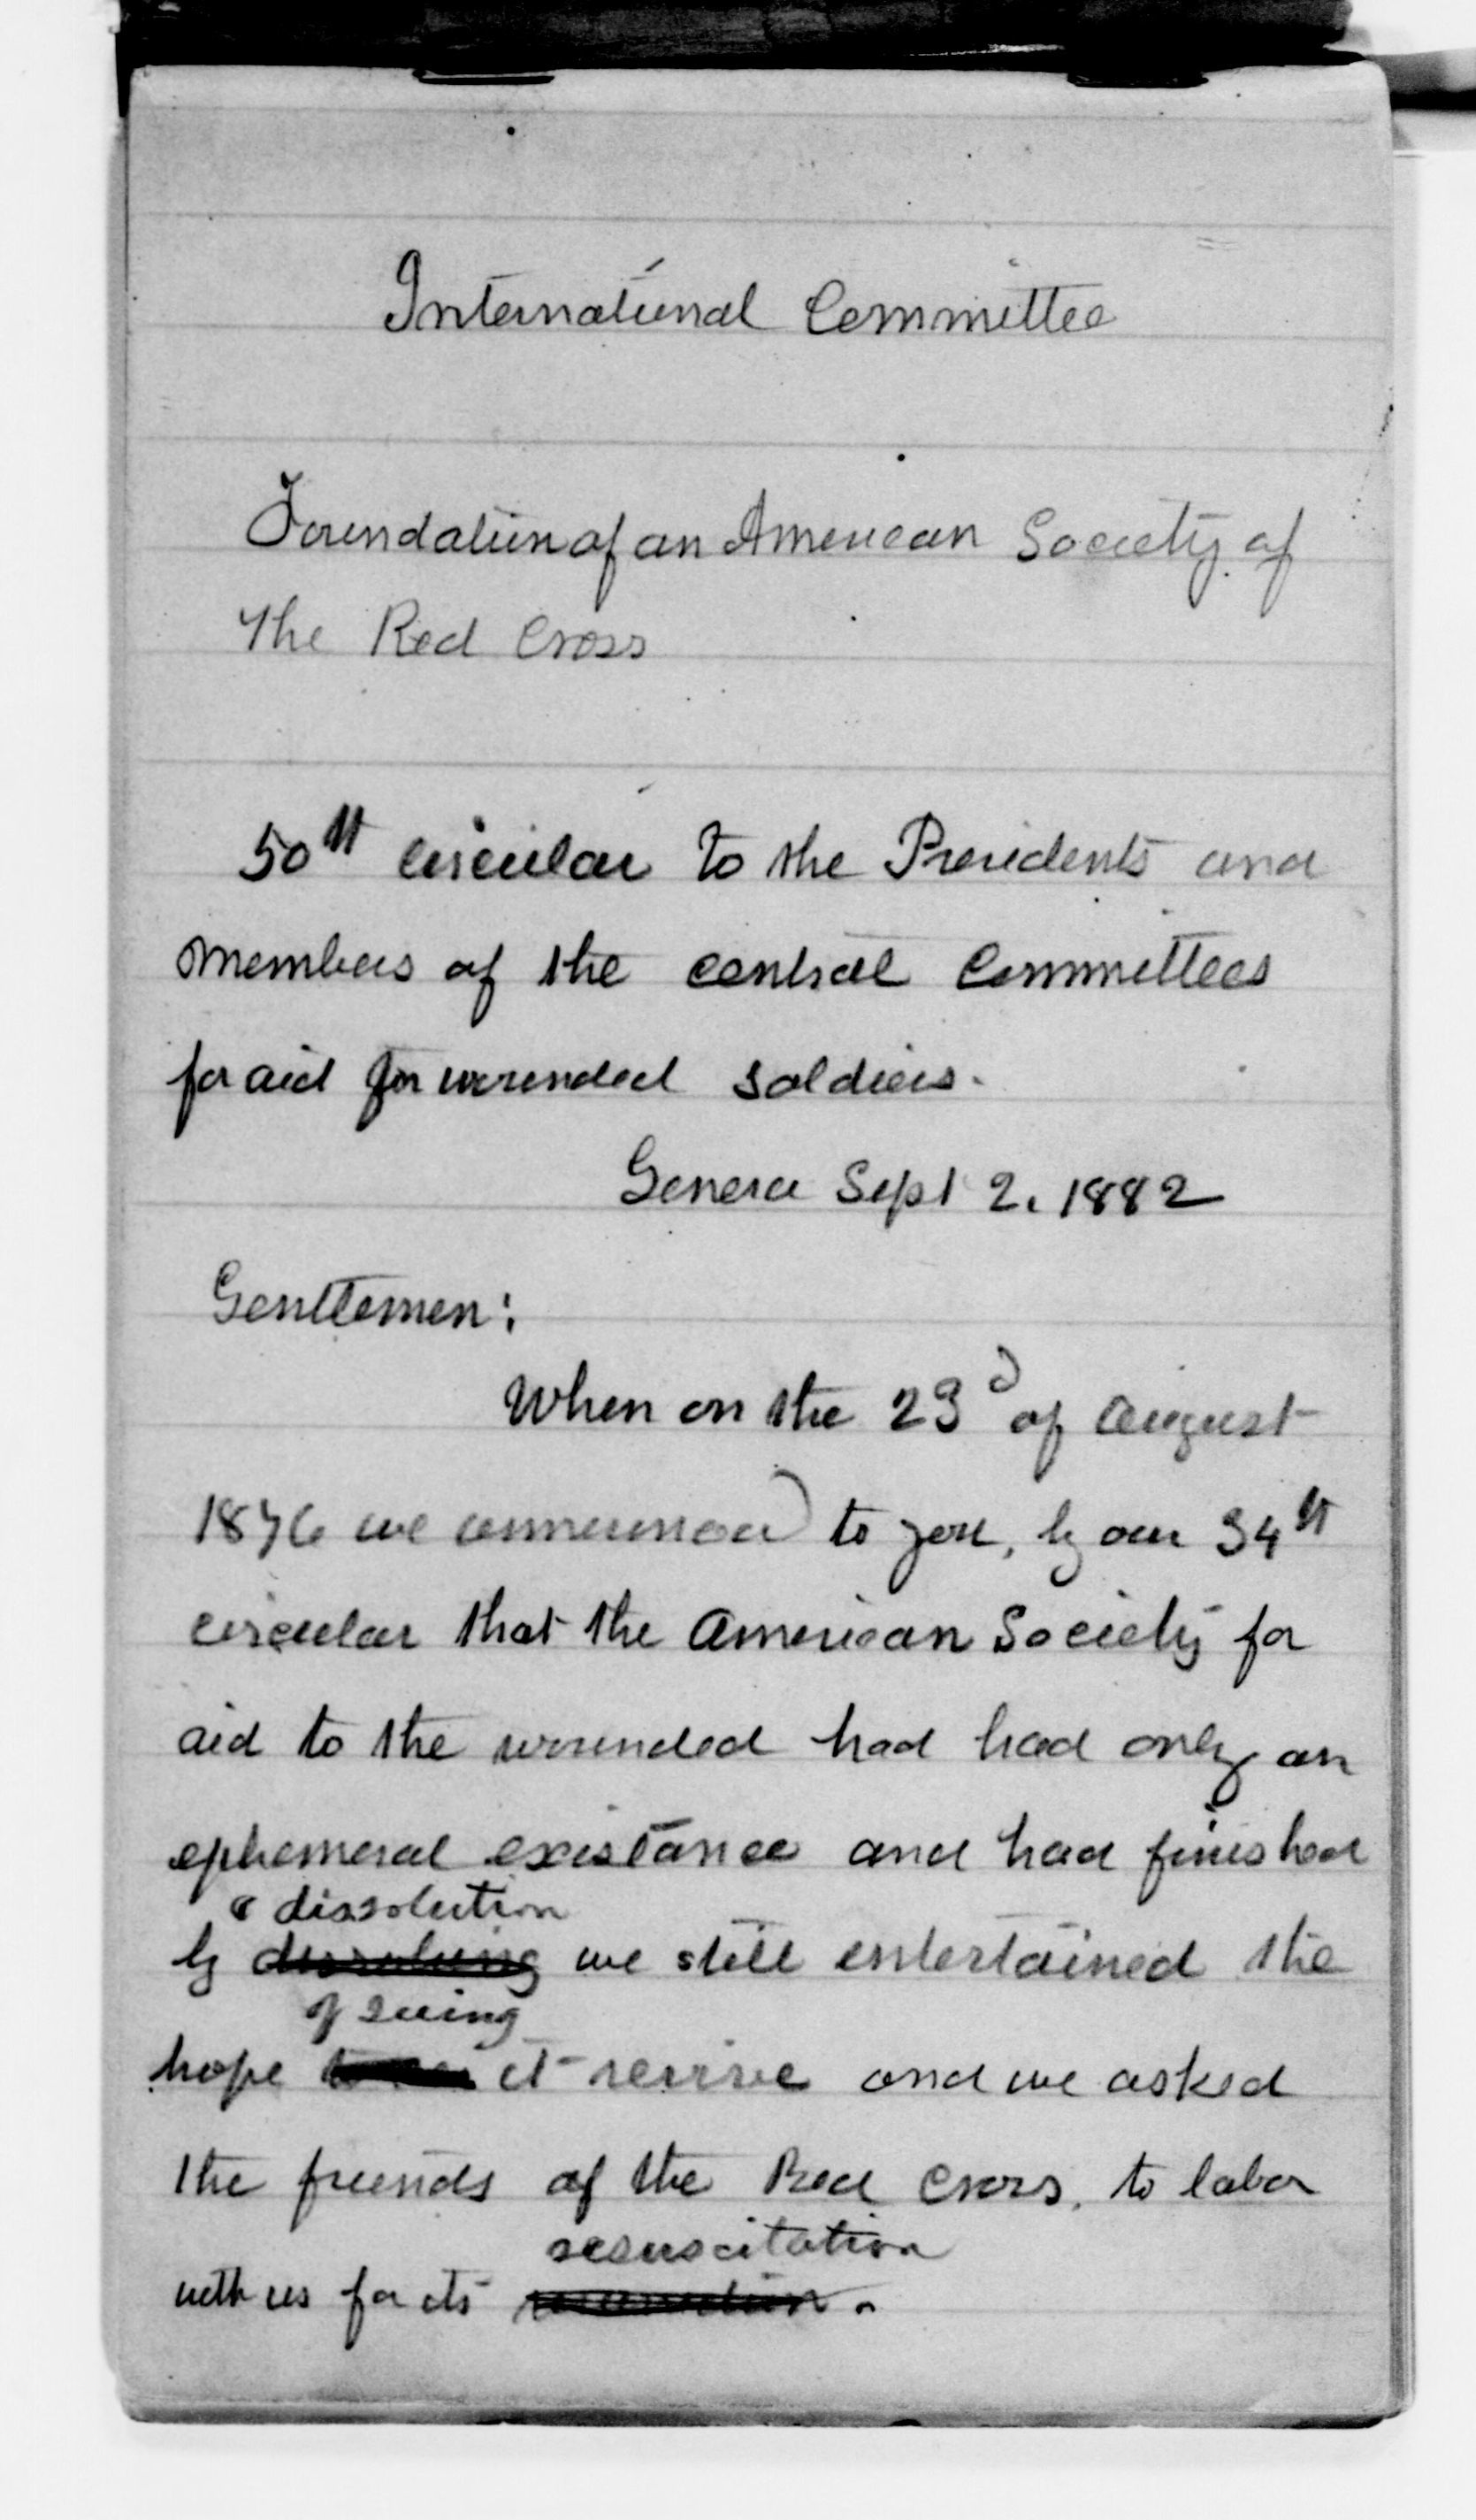 International Committee
Foundation of an American Society of
The Red Cross
50th circular to the Presidents and
members of the central Committees
for aid for wounded soldiers.
Geneva Sept 2. 1882
Gentlemen:
When on the 23d of August
1876 we announced to you, by our 34th
circular that the American Society for
aid to the wounded had had only an
ephemeral existance and had finished
dissolution
by dissolving we still entertained the
of seeing
hope it revive and we asked
the friends of the Red Cross, to labor
resuscitation
with us for its